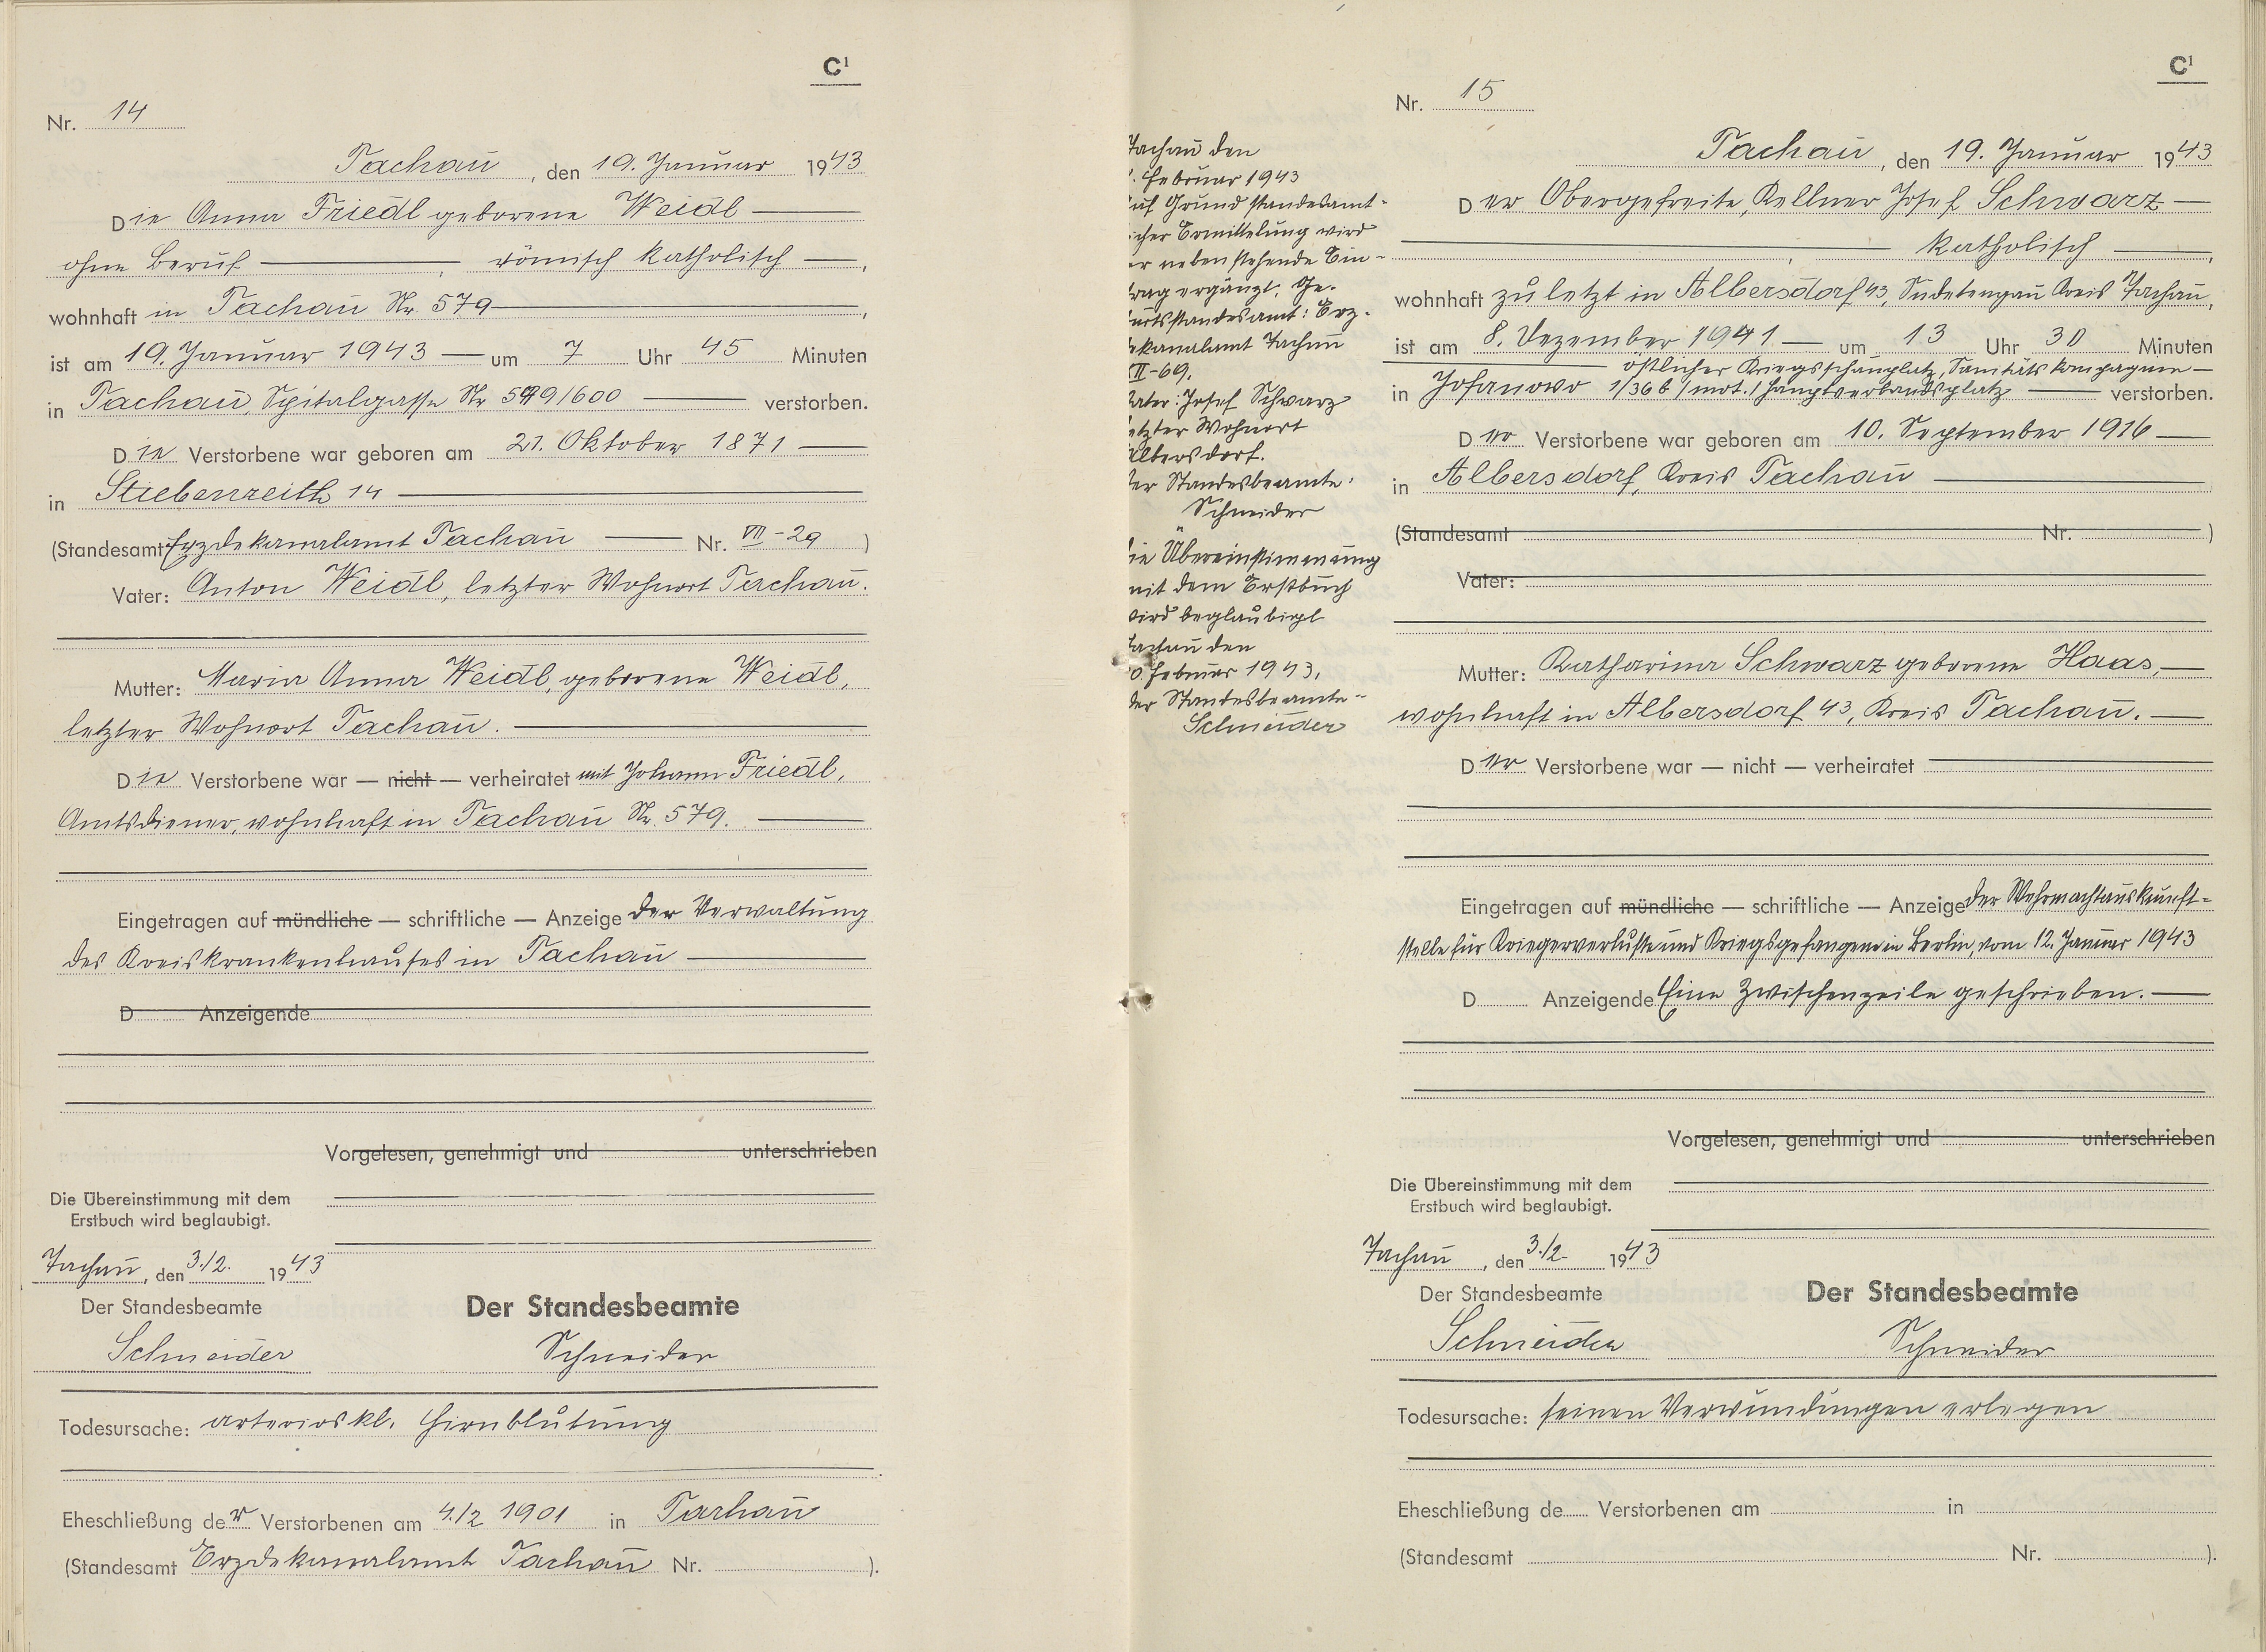 C¹
Nr. 14
Tachau, den 19. Januar 1943
Die Anna Friedl geborene Weidl
ohne Beruf, römisch katholisch,
wohnhaft in Tachau Nr. 579,
ist am 19. Januar 1943 um 7 Uhr 45 Minuten
in Tachau, Spitalgasse Nr 599/600 verstorben.
Die Verstorbene war geboren am 21. Oktober 1871
in Stiebenreith 14
(Standesamt Erzdekanalamt Tachau Nr. VII-29)
Vater: Anton Weidl, letzter Wohnort Tachau.
Mutter: Maria Anna Weidl, geborene Weidl,
letzter Wohnort Tachau.
Die Verstorbene war — nicht — verheiratet mit Johann Friedl,
Amtsdiener, wohnhaft in Tachau Nr. 579.
Eingetragen auf mündliche — schriftliche — Anzeige der Verwaltung
des Kreiskrankenhauses in Tachau
D Anzeigende
Vorgelesen, genehmigt und unterschrieben
Die Übereinstimmung mit dem
Erstbuch wird beglaubigt.
Tachau, den 3./2. 1943
Der Standesbeamte
Schneider
Der Standesbeamte
Schneider
Todesursache: arterioskl. Hirnblutung
Eheschließung der Verstorbenen am 4./2 1901 in Tachau
(Standesamt Erzdekanalamt Tachau Nr. ).
Tachau den
. Februar 1943
uf Grund standesamt-
icher Ermittelung wird
er nebenstehende Ein-
trag ergänzt. Ge-
urtsstandesamt: Erz-
ekanalamt Tachau
II-69.
Vater: Josef Schwarz
etzter Wohnort
Albersdorf.
er Standesbeamte:
Schneider
ie Übereinstimmung
mit dem Erstbuch
wird beglaubigt
Tachau den
0. Februar 1943.
der Standesbeamte
Schneider
C¹
Nr. 15
Tachau, den 19. Januar 1943
Der Obergefreite, Kellner Josef Schwarz
katholisch,
wohnhaft zuletzt in Albersdorf 43, Sudetengau Kreis Tachau,
ist am 8. Dezember 1941 um 13 Uhr 30 Minuten
östlicher Kriegsschauplatz, Sanitätskompagnie
in Josanowo 1/36 b /mot./ Hauptverbandsplatz verstorben.
Der Verstorbene war geboren am 10. September 1916
in Albersdorf, Kreis Tachau
(Standesamt Nr. )
Vater:
Mutter: Katharina Schwarz geborene Haas,
wohnhaft in Albersdorf 43, Kreis Tachau.
Der Verstorbene war — nicht — verheiratet
Eingetragen auf mündliche — schriftliche — Anzeige der Wehrmachtauskunft-
stelle für Kriegerverluste und Kriegsgefangene in Berlin, vom 12. Januar 1943
D Anzeigende Eine Zwischenzeile geschrieben.
Vorgelesen, genehmigt und unterschrieben
Die Übereinstimmung mit dem
Erstbuch wird beglaubigt.
Tachau, den 3./2. 1943
Der Standesbeamte
Schneider
Der Standesbeamte
Schneider
Todesursache: seinen Verwundungen erlegen
Eheschließung de Verstorbenen am in
(Standesamt Nr. ).